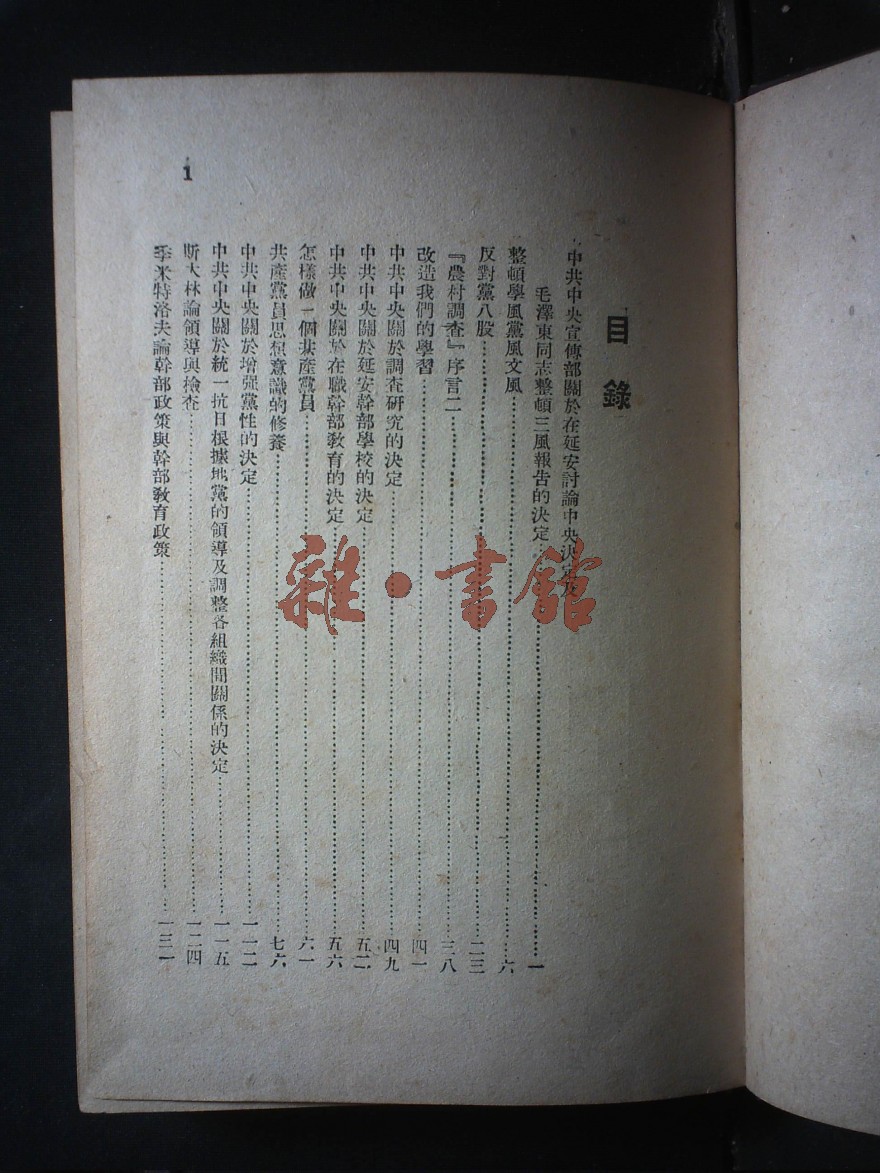 目錄
中共中央宣傳部關於在延安討論中央決定及
毛澤東同志整頓三風報告的決定……一
整頓學風黨風文風……六
反對黨八股……二三
『農村調查』序言二……三八
改造我們的學習……四一
中共中央關於調查研究的決定……四九
中共中央關於延安幹部學校的決定……五二
中共中央關於在職幹部教育的決定……五六
怎樣做一個共產黨員……六一
共產黨員思想意識的修養……七六
中共中央關於增强黨性的決定……一一二
中共中央關於統一抗日根據地黨的領導及調整各組織間關係的決定……一一五
斯大林論領導與檢查……一二四
季米特洛夫論幹部政策與幹部教育政策……一三一
1
雜·書館